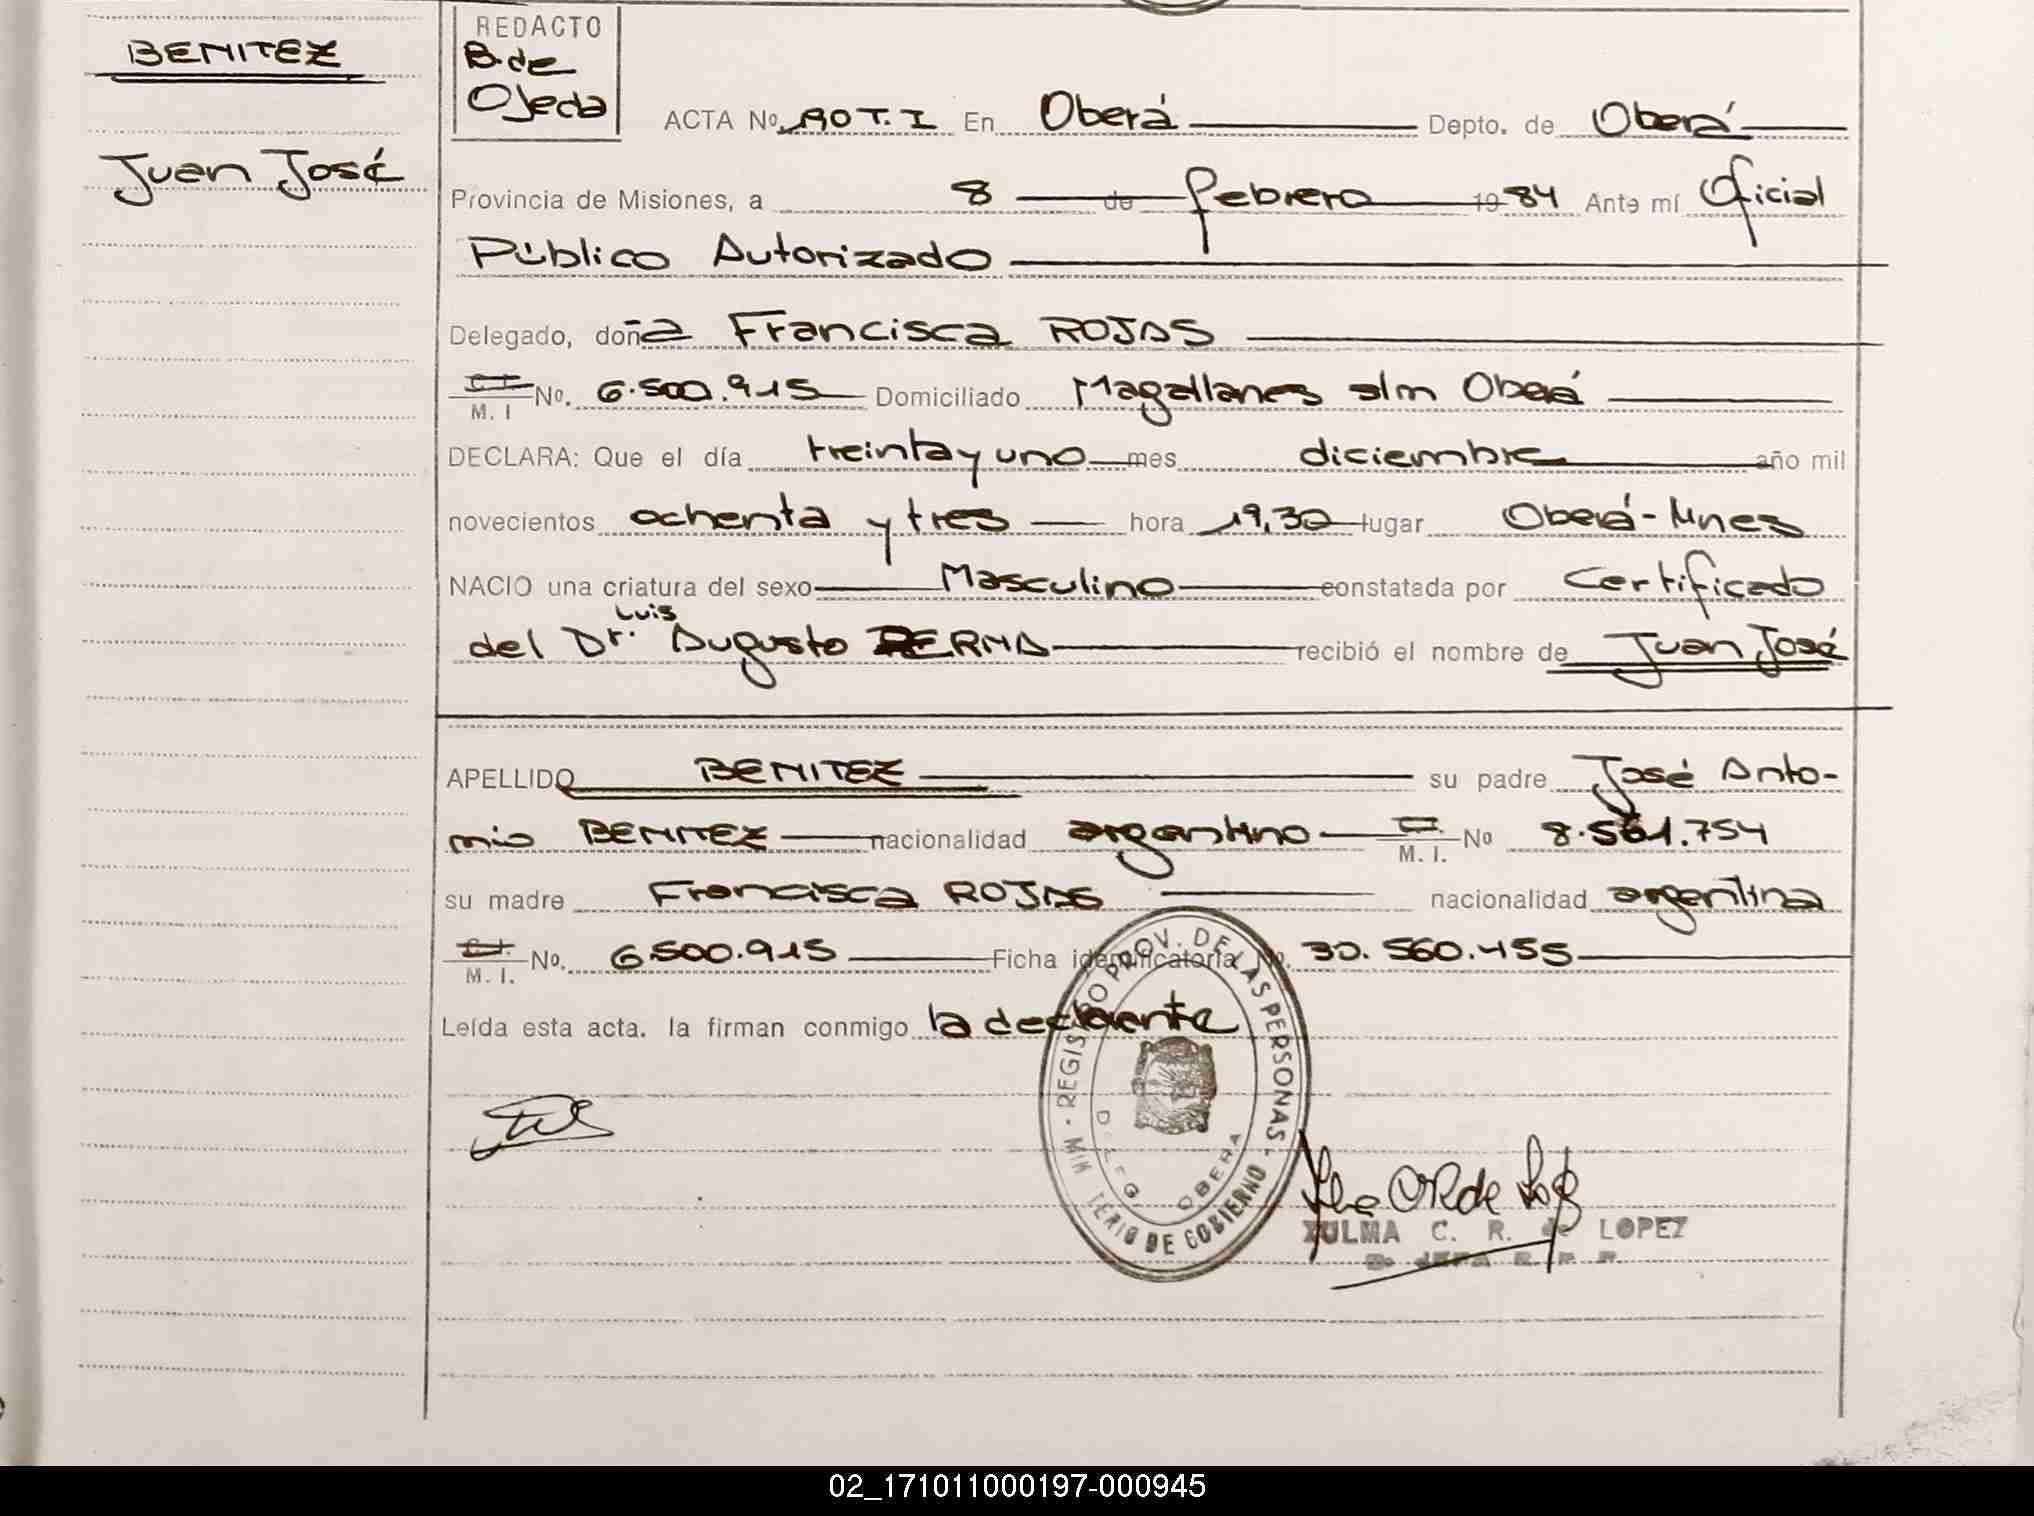 BENITEZ
Juan José
REDACTO
B. de
Ojeda
ACTA No. 190 T. I En Oberá Depto. de Oberá
Provincia de Misiones, a 8 de febrero 1984 Ante mí Oficial
Público Autorizado
Delegado, doña Francisca ROJAS
C. I.
M. I No. 6.500.915 Domiciliado Magallanes s/n Oberá
DECLARA: Que el día treinta y uno mes diciembre año mil
novecientos ochenta y tres hora 19,30 lugar Oberá-Mnes
NACIO una criatura del sexo Masculino constatada por Certificado
del Dr. Luis Augusto PERNA recibió el nombre de Juan José
APELLIDO BENITEZ su padre José Anto-
nio BENITEZ nacionalidad argentino M. I. No 8.561.754
su madre Francisca ROJAS nacionalidad argentina
C. I.
M. I. No. 6.500.915 Ficha identificatoria No. 30.560.455
Leída esta acta. la firman conmigo la declarante
REGISTRO PROV. DE LAS PERSONAS
DELEG. OBERA
MINISTERIO DE GOBIERNO
ZULMA C. R. de LOPEZ
JEFA R. P. P.
02_171011000197-000945